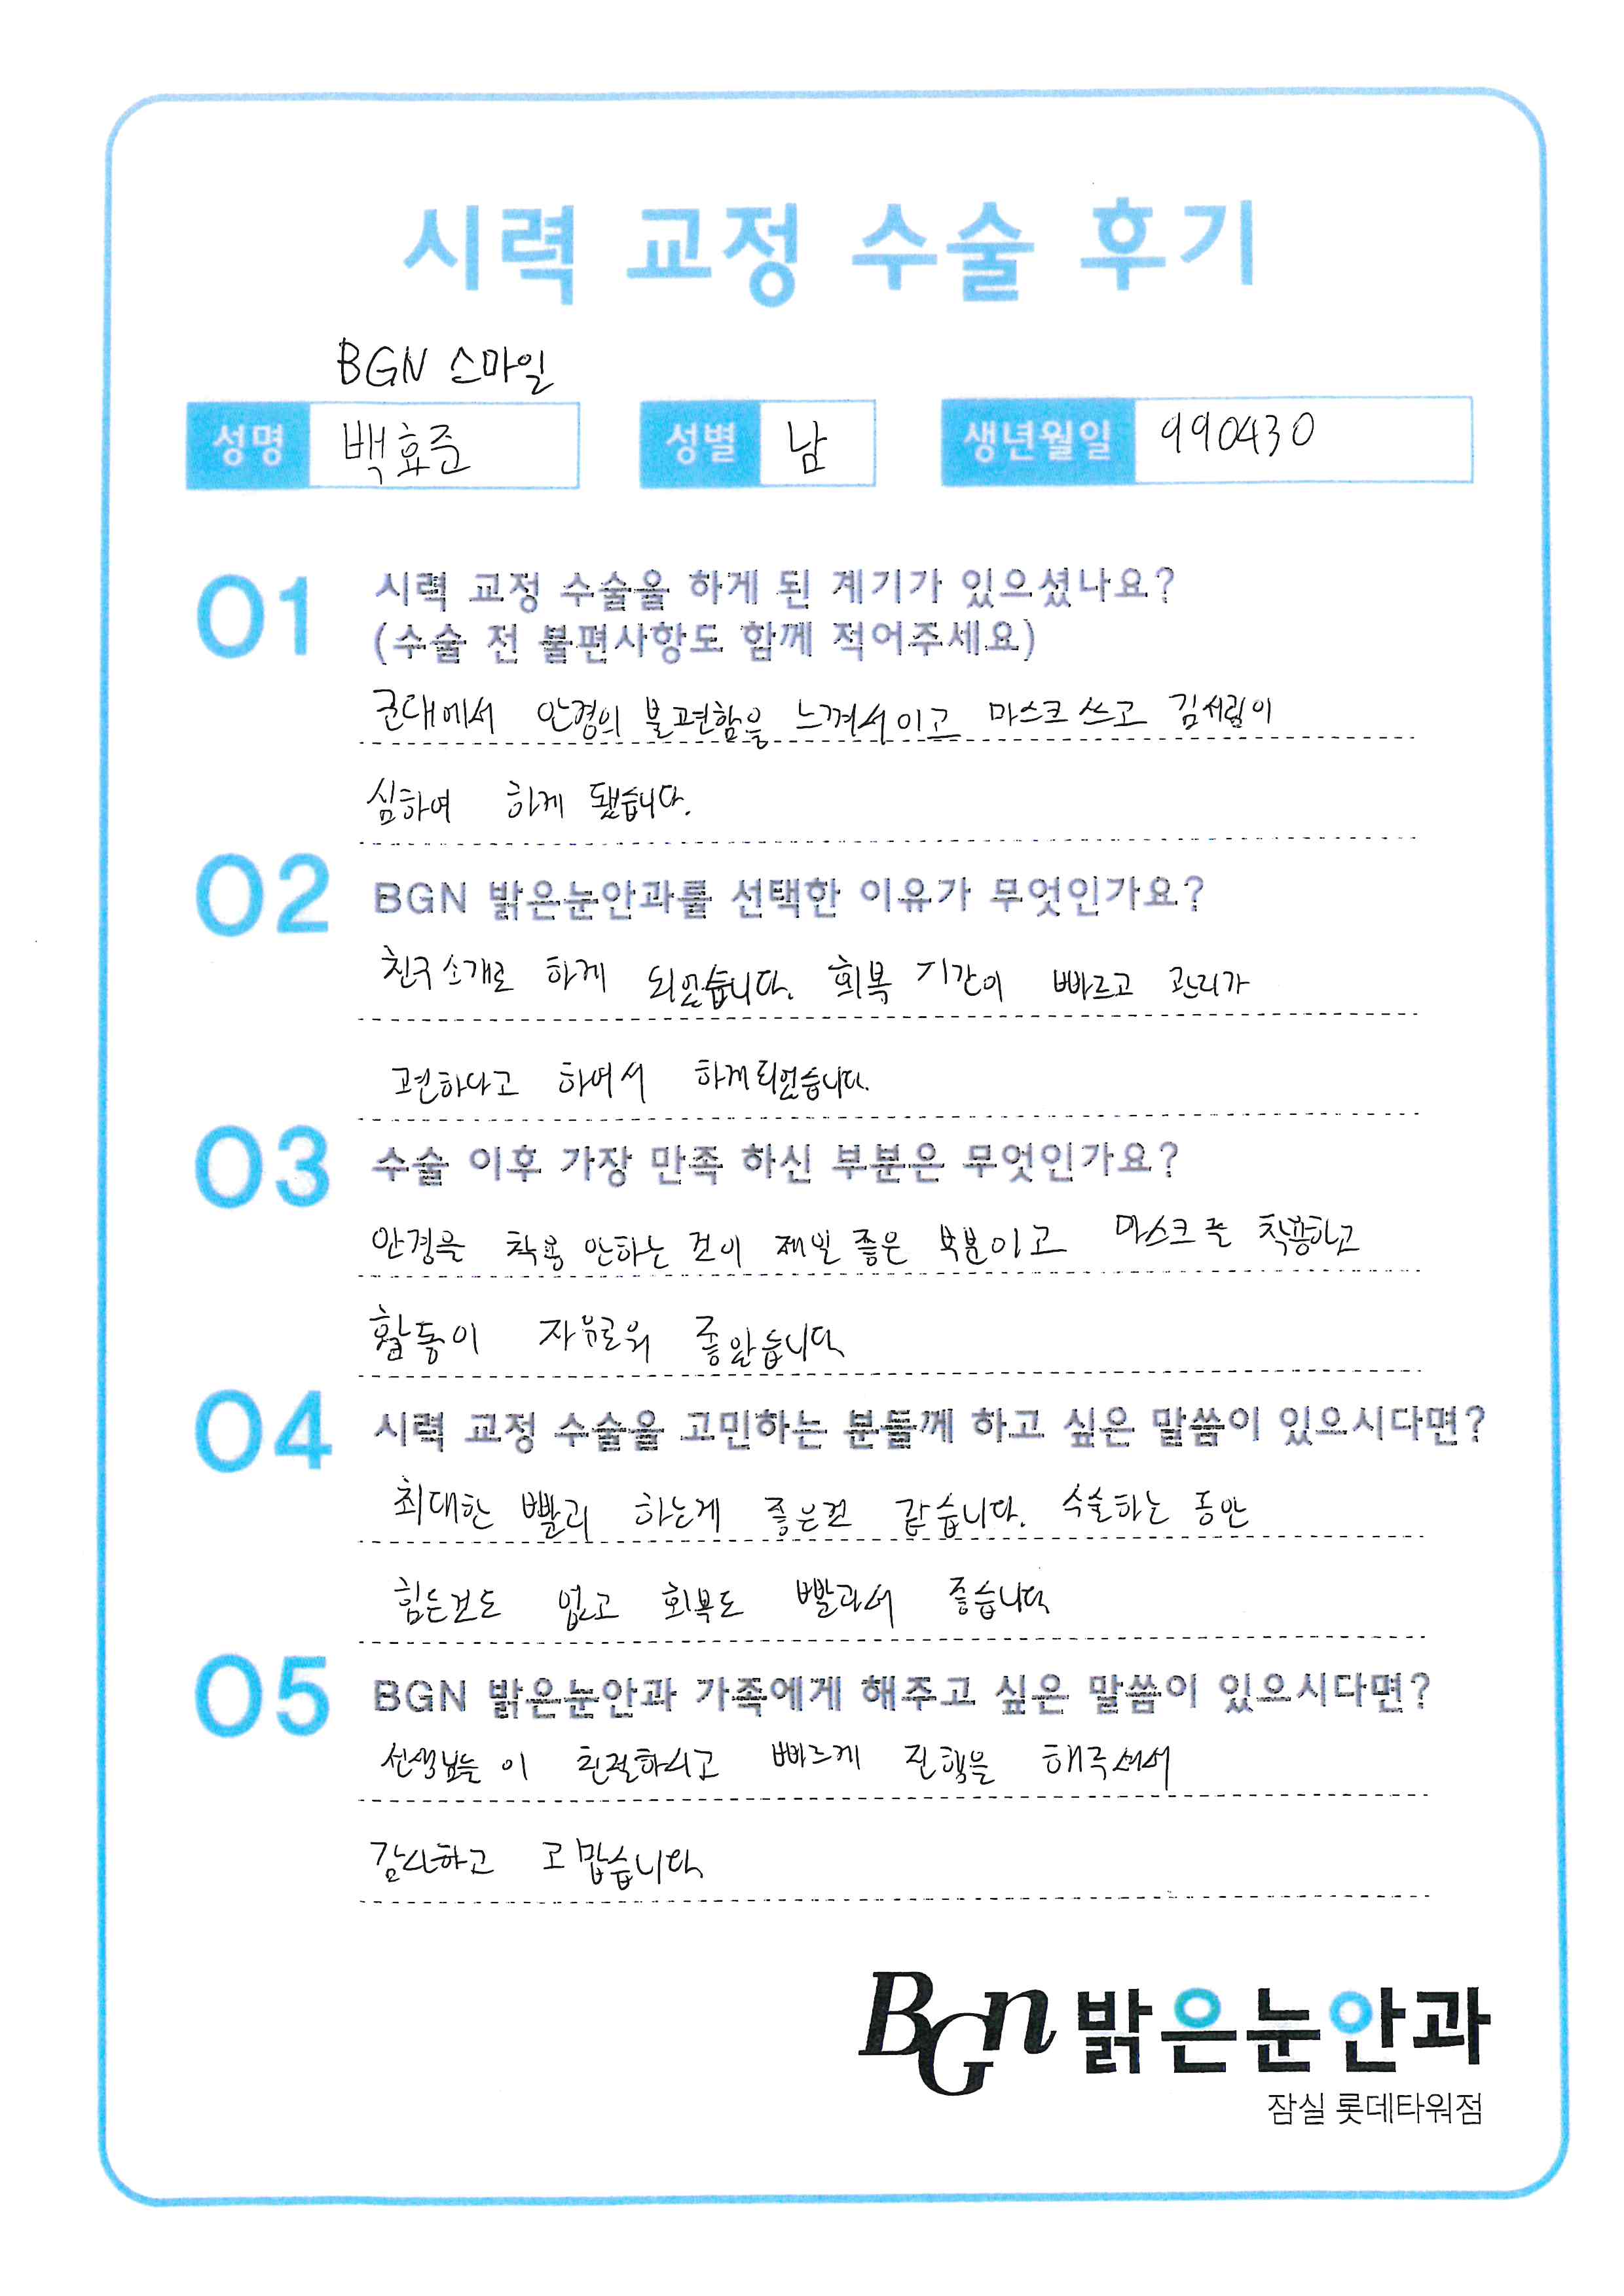 시력 교정 수술 후기
BGN 스마일
성명 백효준 성별 남 생년월일 990430
01 시력 교정 수술을 하게 된 계기가 있으셨나요?
(수술 전 불편사항도 함께 적어주세요)
군대에서 안경의 불편함을 느껴서이고 마스크 쓰고 김서림이
심하여 하게 됐습니다.
02 BGN 밝은눈안과를 선택한 이유가 무엇인가요?
친구소개로 하게 되었습니다. 회복 기간이 빠르고 관리가
편하다고 하여서 하게되었습니다.
03 수술 이후 가장 만족 하신 부분은 무엇인가요?
안경을 착용 안하는 것이 제일 좋은 부분이고 마스크를 착용하고
활동이 자유로워 좋았습니다
04 시력 교정 수술을 고민하는 분들께 하고 싶은 말씀이 있으시다면?
최대한 빨리 하는게 좋은것 같습니다. 수술하는 동안
힘든것도 없고 회복도 빨라서 좋습니다
05 BGN 밝은눈안과 가족에게 해주고 싶은 말씀이 있으시다면?
선생님들이 친절하시고 빠르게 진행을 해주셔서
감사하고 고맙습니다
BGn 밝은눈안과
잠실 롯데타워점